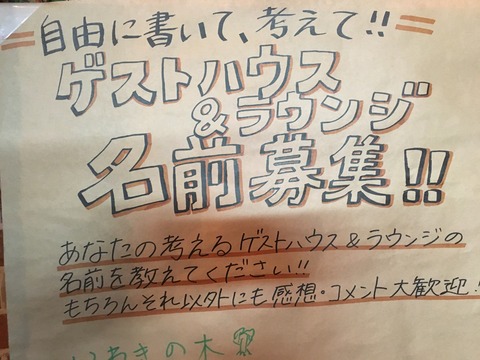 自由に書いて、考えて!!
ゲストハウス
&ラウンジ
名前募集!!
あなたの考えるゲストハウス&ラウンジの
名前を教えてください!!
もちろんそれ以外にも感想・コメント大歓迎!!
いぶきの木